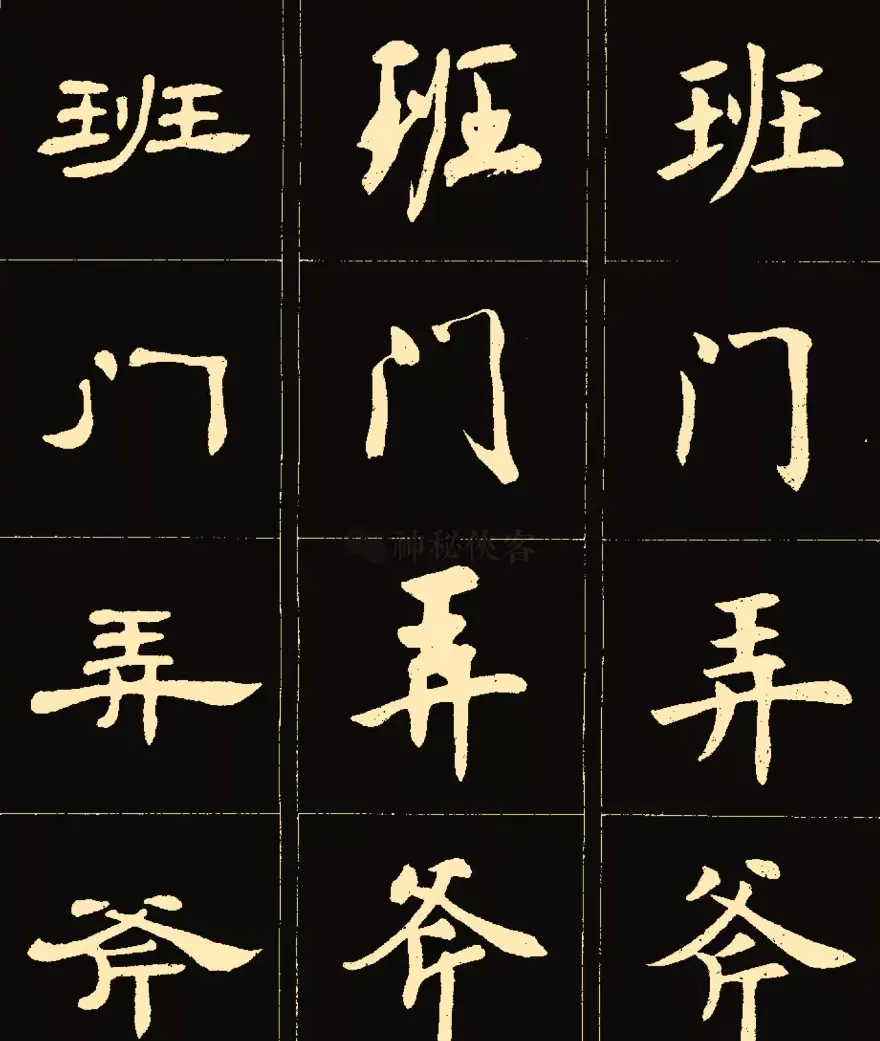 班 班 班
门 门 门
神秘侠客
弄 弄 弄
斧 斧 斧